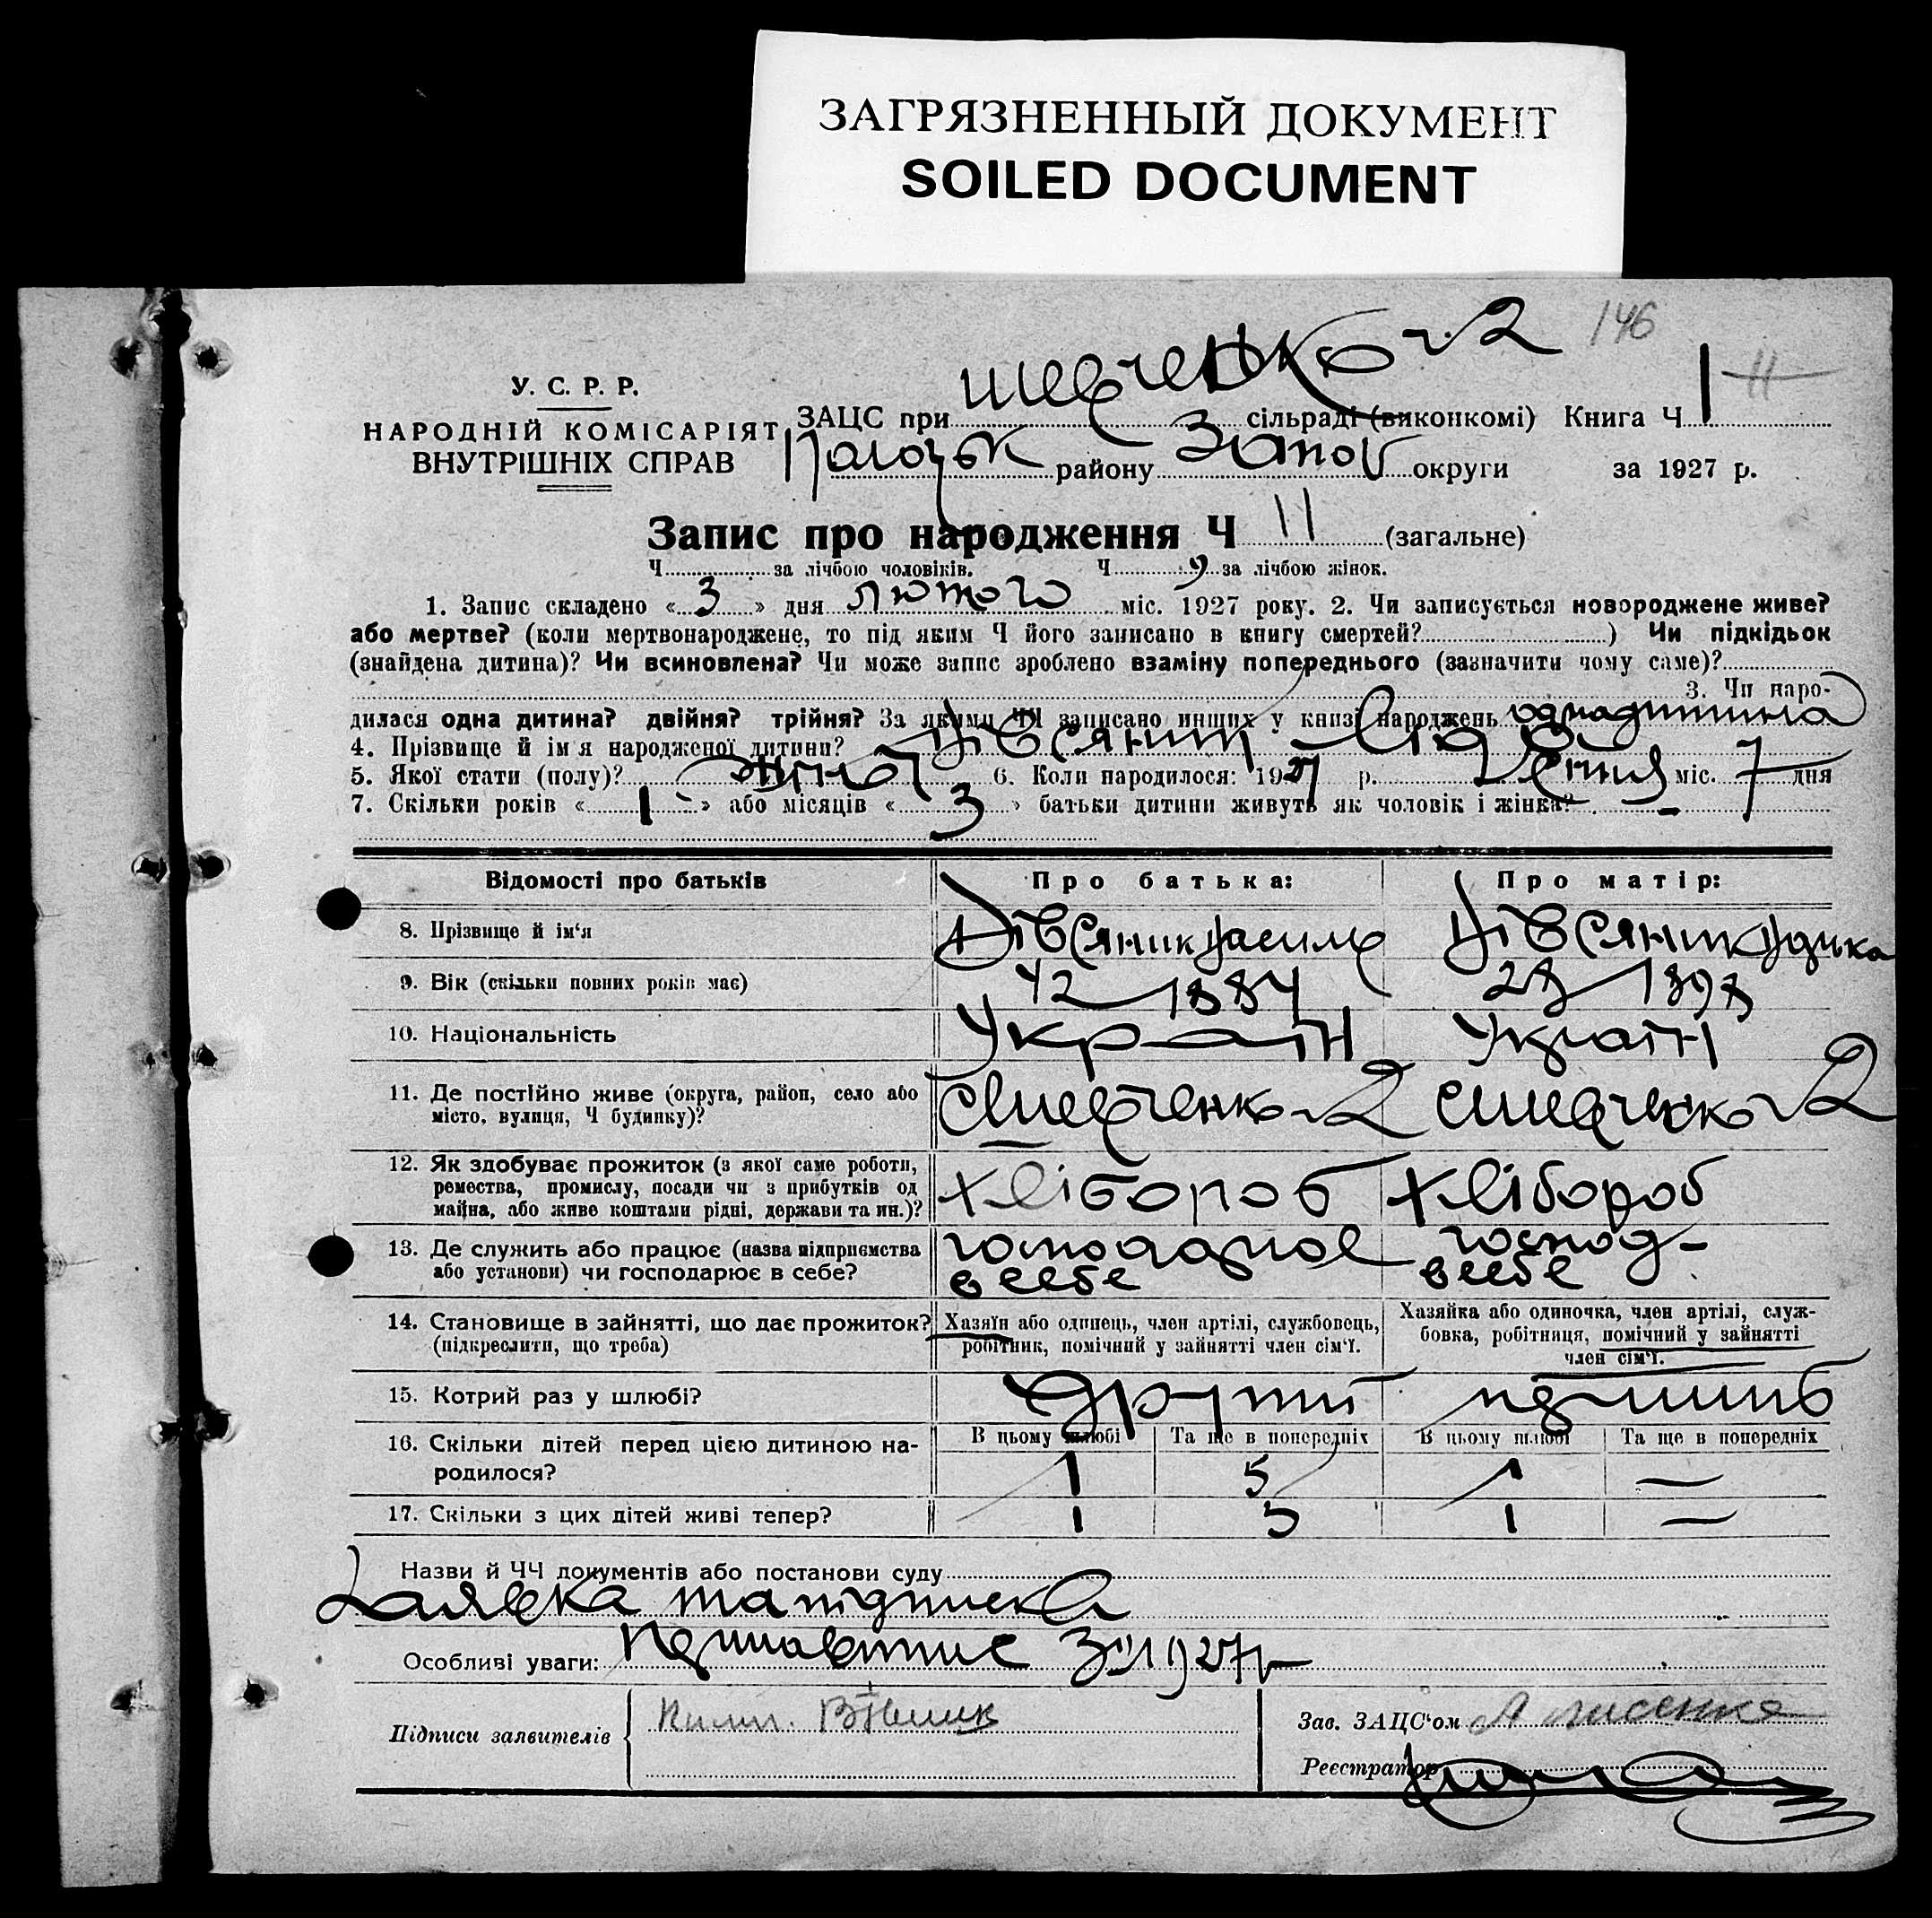 ЗАГРЯЗНЕННЫЙ ДОКУМЕНТ
SOILED DOCUMENT
146
У. С. Р. Р.
НАРОДНІЙ КОМІСАРІЯТ
ВНУТРІШНІХ СПРАВ
ЗАЦС при Шевченко №2 сільраді (виконкомі) Книга Ч 1 11
району Запор округи за 1927 р.
Запис про народження Ч 11 (загальне)
Ч за лічбою чоловіків. Ч 9 за лічбою жінок.
1. Запис складено « 3 » дня лютого міс. 1927 року. 2. Чи записується новороджене живе?
або мертве? (коли мертвонароджене, то під яким Ч його записано в книгу смертей? ) Чи підкідьок
(знайдена дитина)? Чи всиновлена? Чи може запис зроблено взаміну попереднього (зазначити чому саме)?
3. Чи наро-
дилася одна дитина? двійня? трійня? За якими ЧЧ записано инших у книзі народжень одна дитина
4. Прізвище й ім'я народженої дитини?
5. Якої стати (полу)? 6. Коли народилося: 1927 р. Січня міс. 7 дня
7. Скільки років « 1 » або місяців « 3 » батьки дитини живуть як чоловік і жінка? -
Відомості про батьків
Про батька:
Про матір:
8. Прізвище й ім'я
Василь
9. Вік (скільки повних років має)
42 1884
28 1898
10. Національність
Україн
Україн
11. Де постійно живе (округа, район, село або
місто, вулиця, Ч будинку)?
с Шевченко №2
с Шевченко №2
12. Як здобуває прожиток (з якої саме роботи,
ремества, промислу, посади чи з прибутків од
майна, або живе коштами рідні, держави та ин.)?
хлібороб
хлібороб
13. Де служить або працює (назва підприємства
або установи) чи господарює в себе?
господарює
в себе
господ-
в себе
14. Становище в зайнятті, що дає прожиток?
(підкреслити, що треба)
Хазяїн або одинець, член артілі, службовець,
робітник, помічний у зайнятті член сім'ї.
Хазяйка або одиночка, член артілі, служ-
бовка, робітниця, помічний у зайнятті
член сім'ї.
15. Котрий раз у шлюбі?
другий
перший
16. Скільки дітей перед цією дитиною на-
родилося?
В цьому шлюбі
Та ще в попередніх
В цьому шлюбі
Та ще в попередніх
1
5
1
—
17. Скільки з цих дітей живі тепер?
1
5
1
—
Назви й ЧЧ документів або постанови суду
Заявка та підписка
Особливі уваги: 1927р
Підписи заявителів
Зав. ЗАЦС'ом А Лисенко
Реєстратор